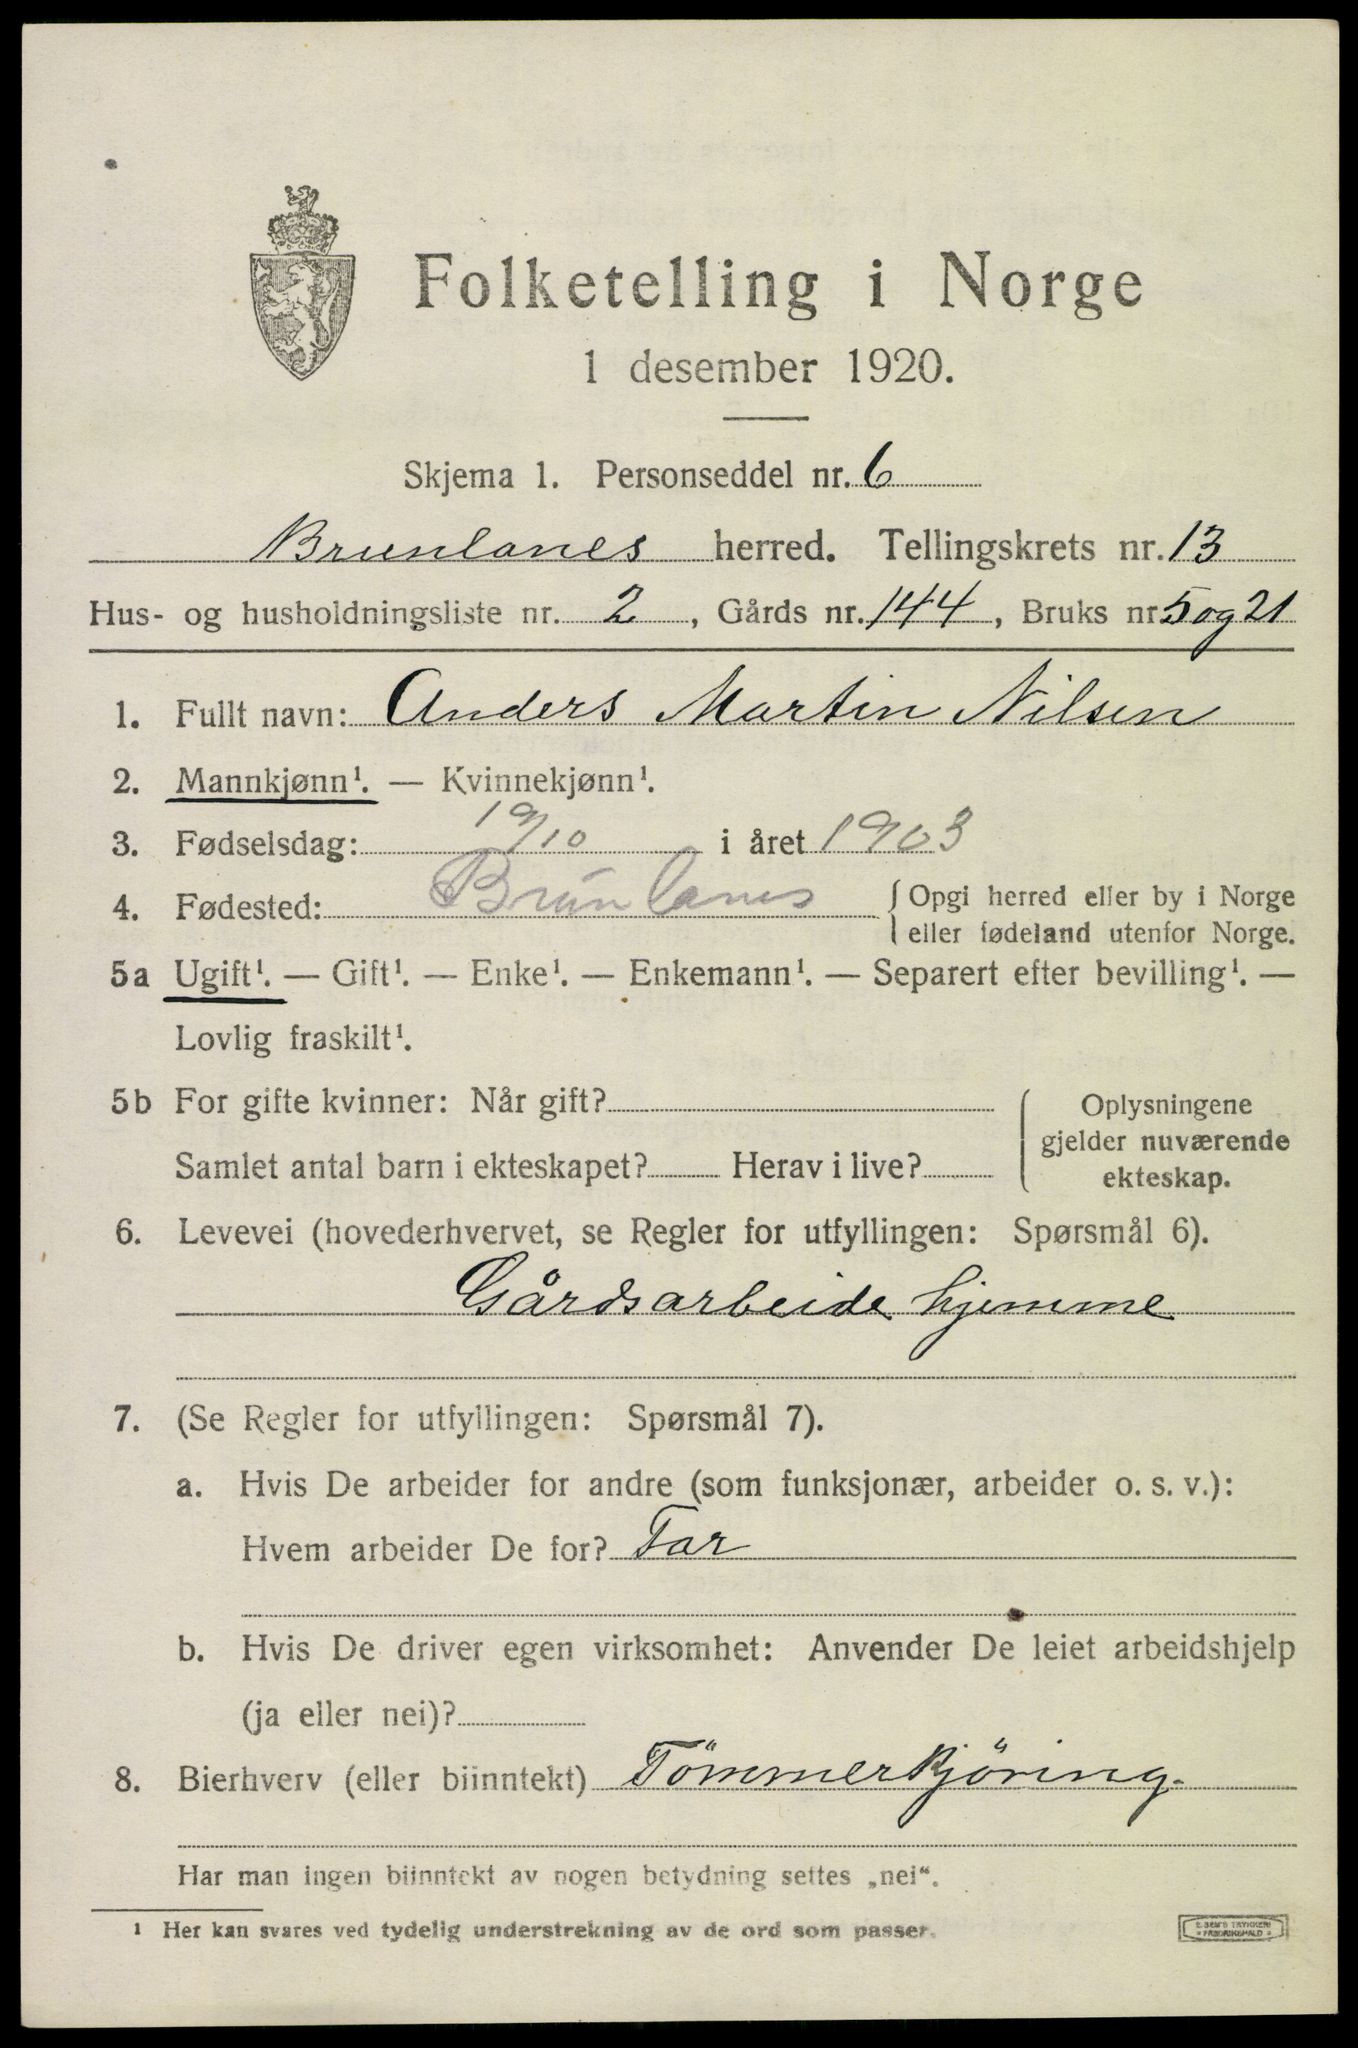 Folketelling i Norge
1 desember 1920.
Skjema 1. Personseddel nr. 6
Brunlanes herred. Tellingskrets nr. 13
Hus- og husholdningsliste nr. 2, Gårds nr. 144, Bruks nr. 5 og 21
1. Fullt navn: Anders Martin Nilsen
2. Mannkjønn¹. — Kvinnekjønn¹.
3. Fødselsdag: 19/10 i året 1903
4. Fødested: Brunlanes { Opgi herred eller by i Norge
eller fødeland utenfor Norge.
5a Ugift¹. — Gift¹. — Enke¹. — Enkemann¹. — Separert efter bevilling¹. —
Lovlig fraskilt¹.
5b For gifte kvinner: Når gift? Oplysningene
gjelder nuværende
Samlet antal barn i ekteskapet? Herav i live? ekteskap.
6. Levevei (hovederhvervet, se Regler for utfyllingen: Spørsmål 6).
Gårdsarbeide hjemme
7. (Se Regler for utfyllingen: Spørsmål 7).
a. Hvis De arbeider for andre (som funksjonær, arbeider o. s. v.):
Hvem arbeider De for? Far
b. Hvis De driver egen virksomhet: Anvender De leiet arbeidshjelp
(ja eller nei)?
8. Bierhverv (eller biinntekt) Tömmerkjöring.
Har man ingen biinntekt av nogen betydning settes „nei“.
¹ Her kan svares ved tydelig understrekning av de ord som passer.